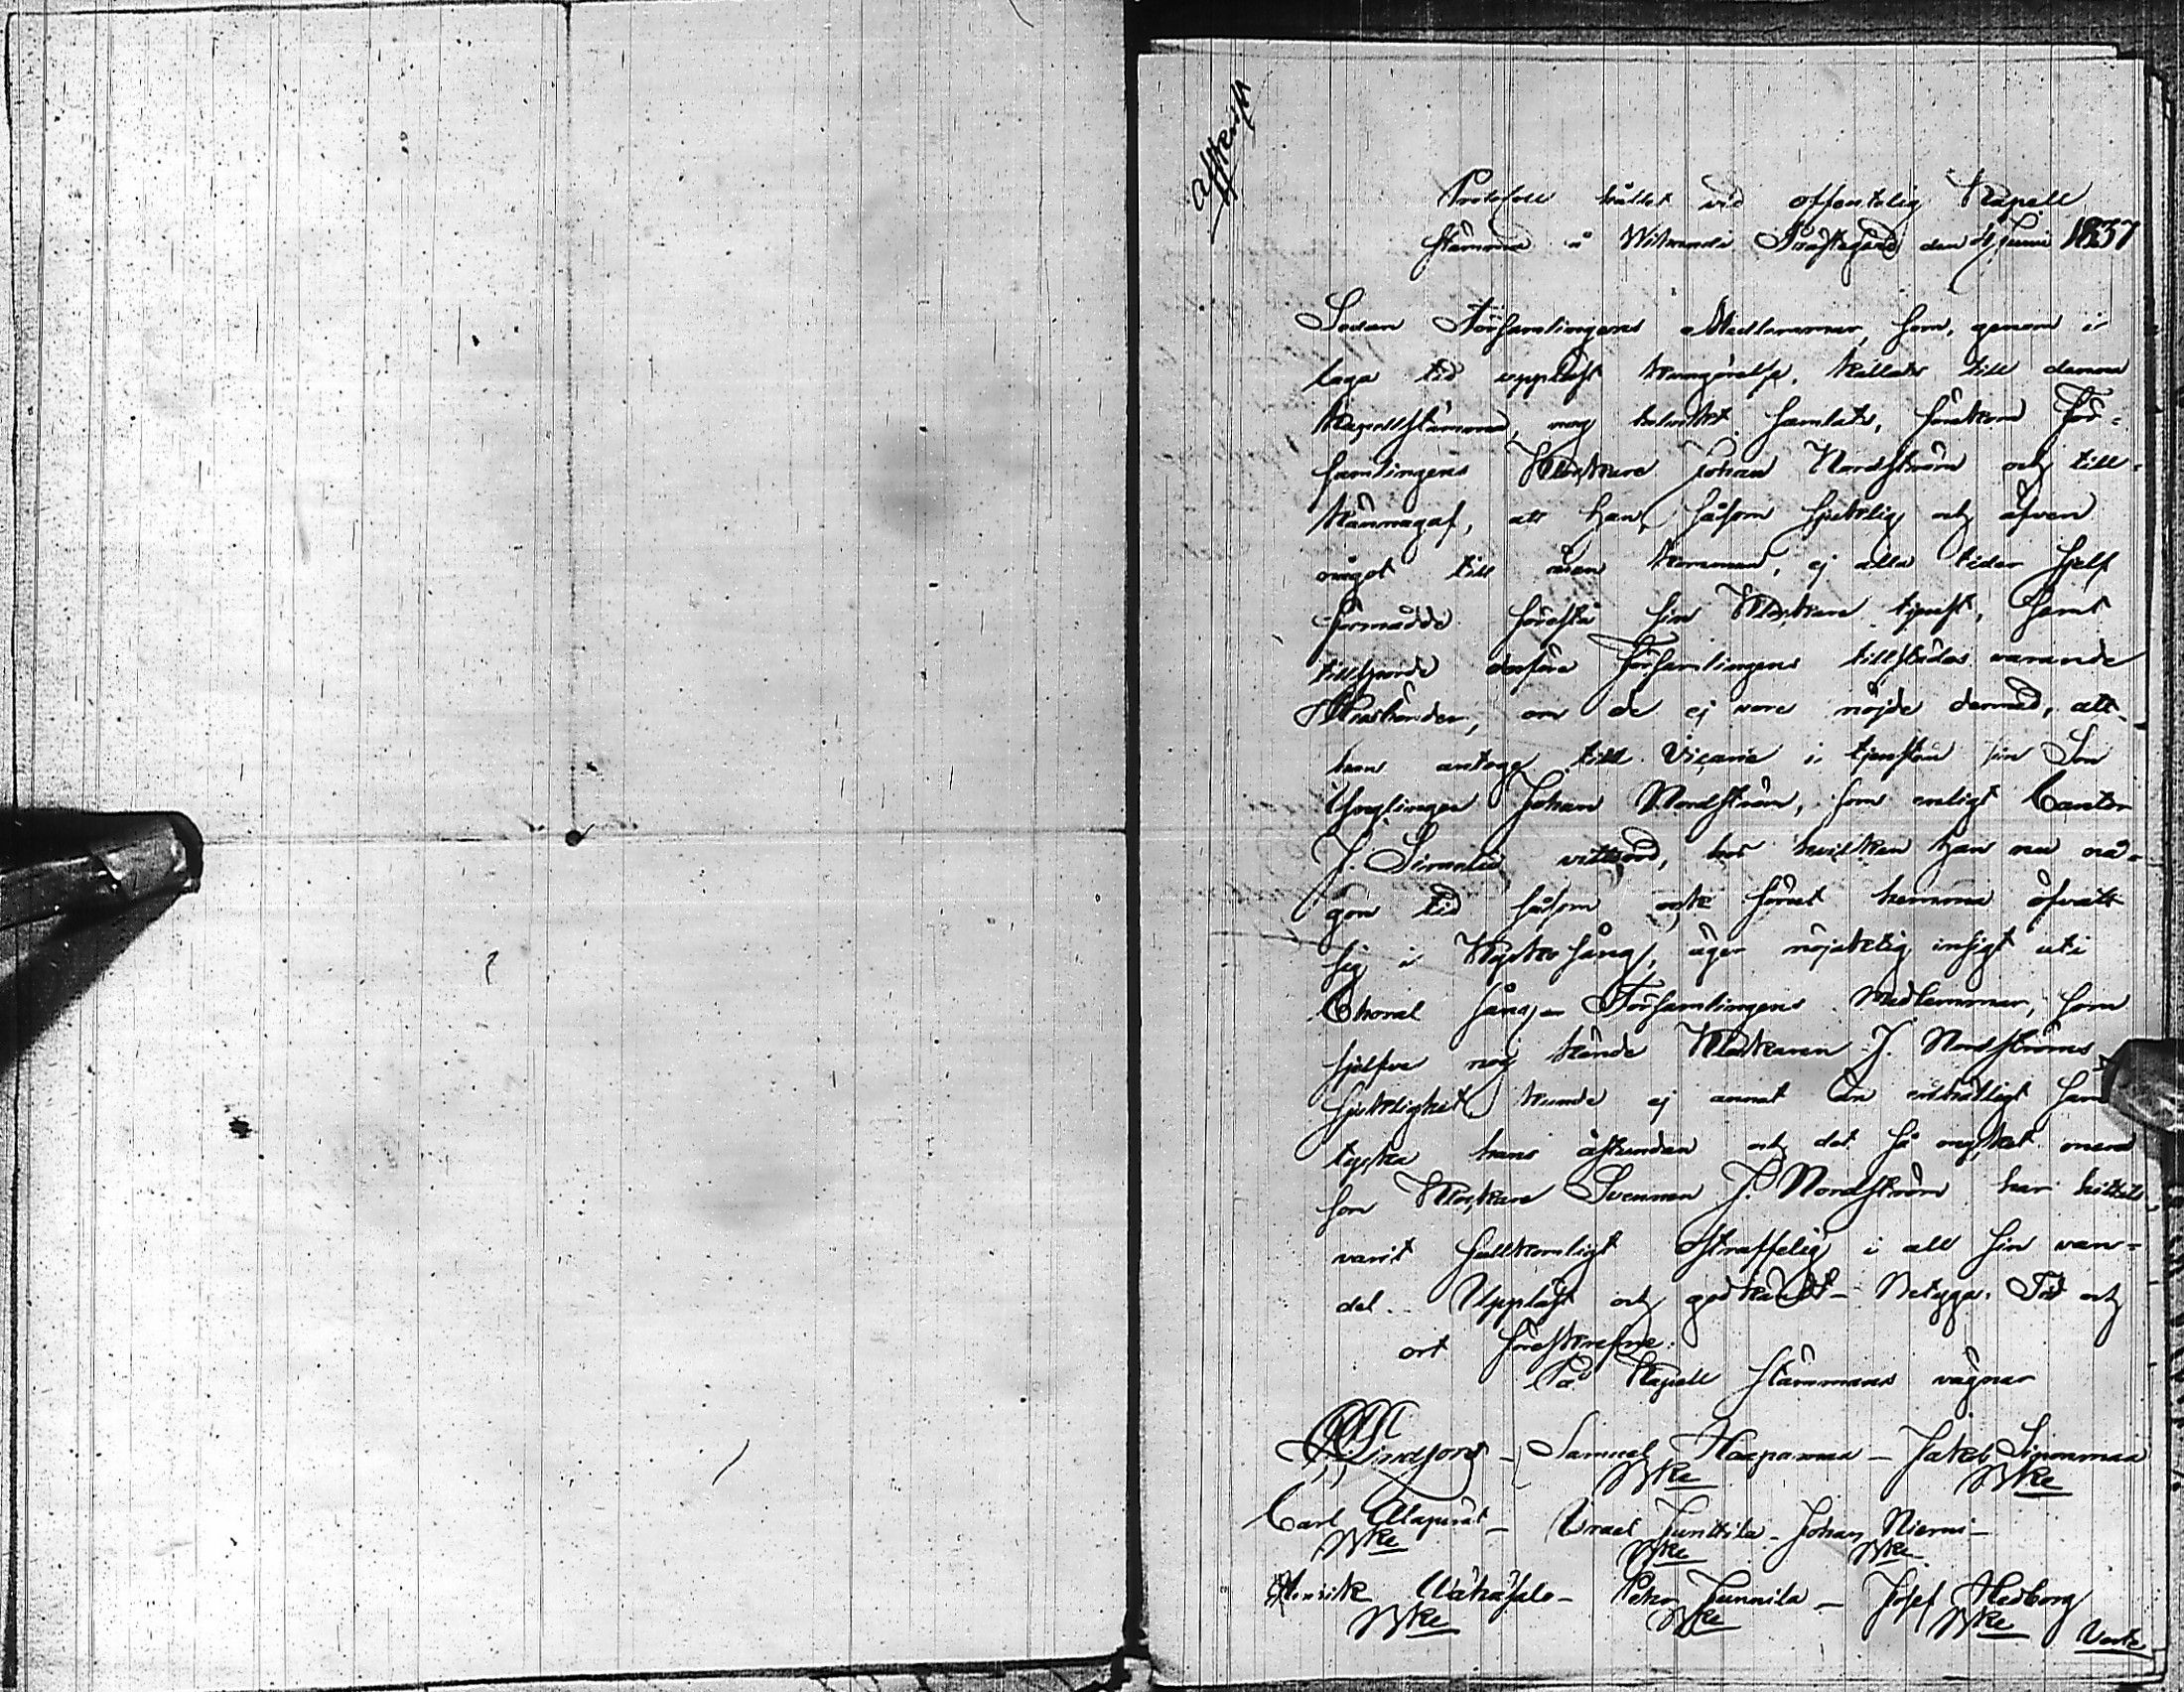 Afskrift
Protokoll hållet vid offentelig Kapell
stämma å Prästegård den 4 Junii 1837
Sedan Församlingens Medlemmar, som, genom i
laga tid uppläst kungörelse, kallats till denna
Kapellstämma, nog talrikt samlats, förekom För-
samlingens Klockare Johan Nordström och till-
kännagaf, att han, såsom sjuklig och äfven
något till åren kommen, ej alla tider sjelf
förmådde förestå sin Klockare tjenst, samt
tillsporde derföre Församlingens tillstädes varande
om de ej vore nöjde dermed, att
han antoge till Vicarie i tjensten sin Son
Ynglingen Johan Nordström, som enligt Cantor
J. vittsord, hos hvilken han nu nå-
gon tid såsom ock förut hemma öfvat
sig i Kyrko sång, äger nöjaktig insigt uti
Choral sång — Församlingens Medlemmar, som
sjelfve nog kände Klockaren J. Nordströms
sjuklighet, kunde ej annat än enhälligt sam
tycka hans åstundan och det så mycket mera
som Klockare Svennen J. Nordström har hittils
varit fullkomligt Ostraffelig i all sin van-
del. Uppläst och godkändt — Betyga. Tid och
ort förutskrefne.
På Kapell stämmans vägnar
Lindfors — Samuel Haapamaa — Jakob Simomaa
Carl Alapurat — Israel Junttila — Johan Niemi —
Henrik Wähäsalo — Petter Junnila — Josef Hedborg
Verte